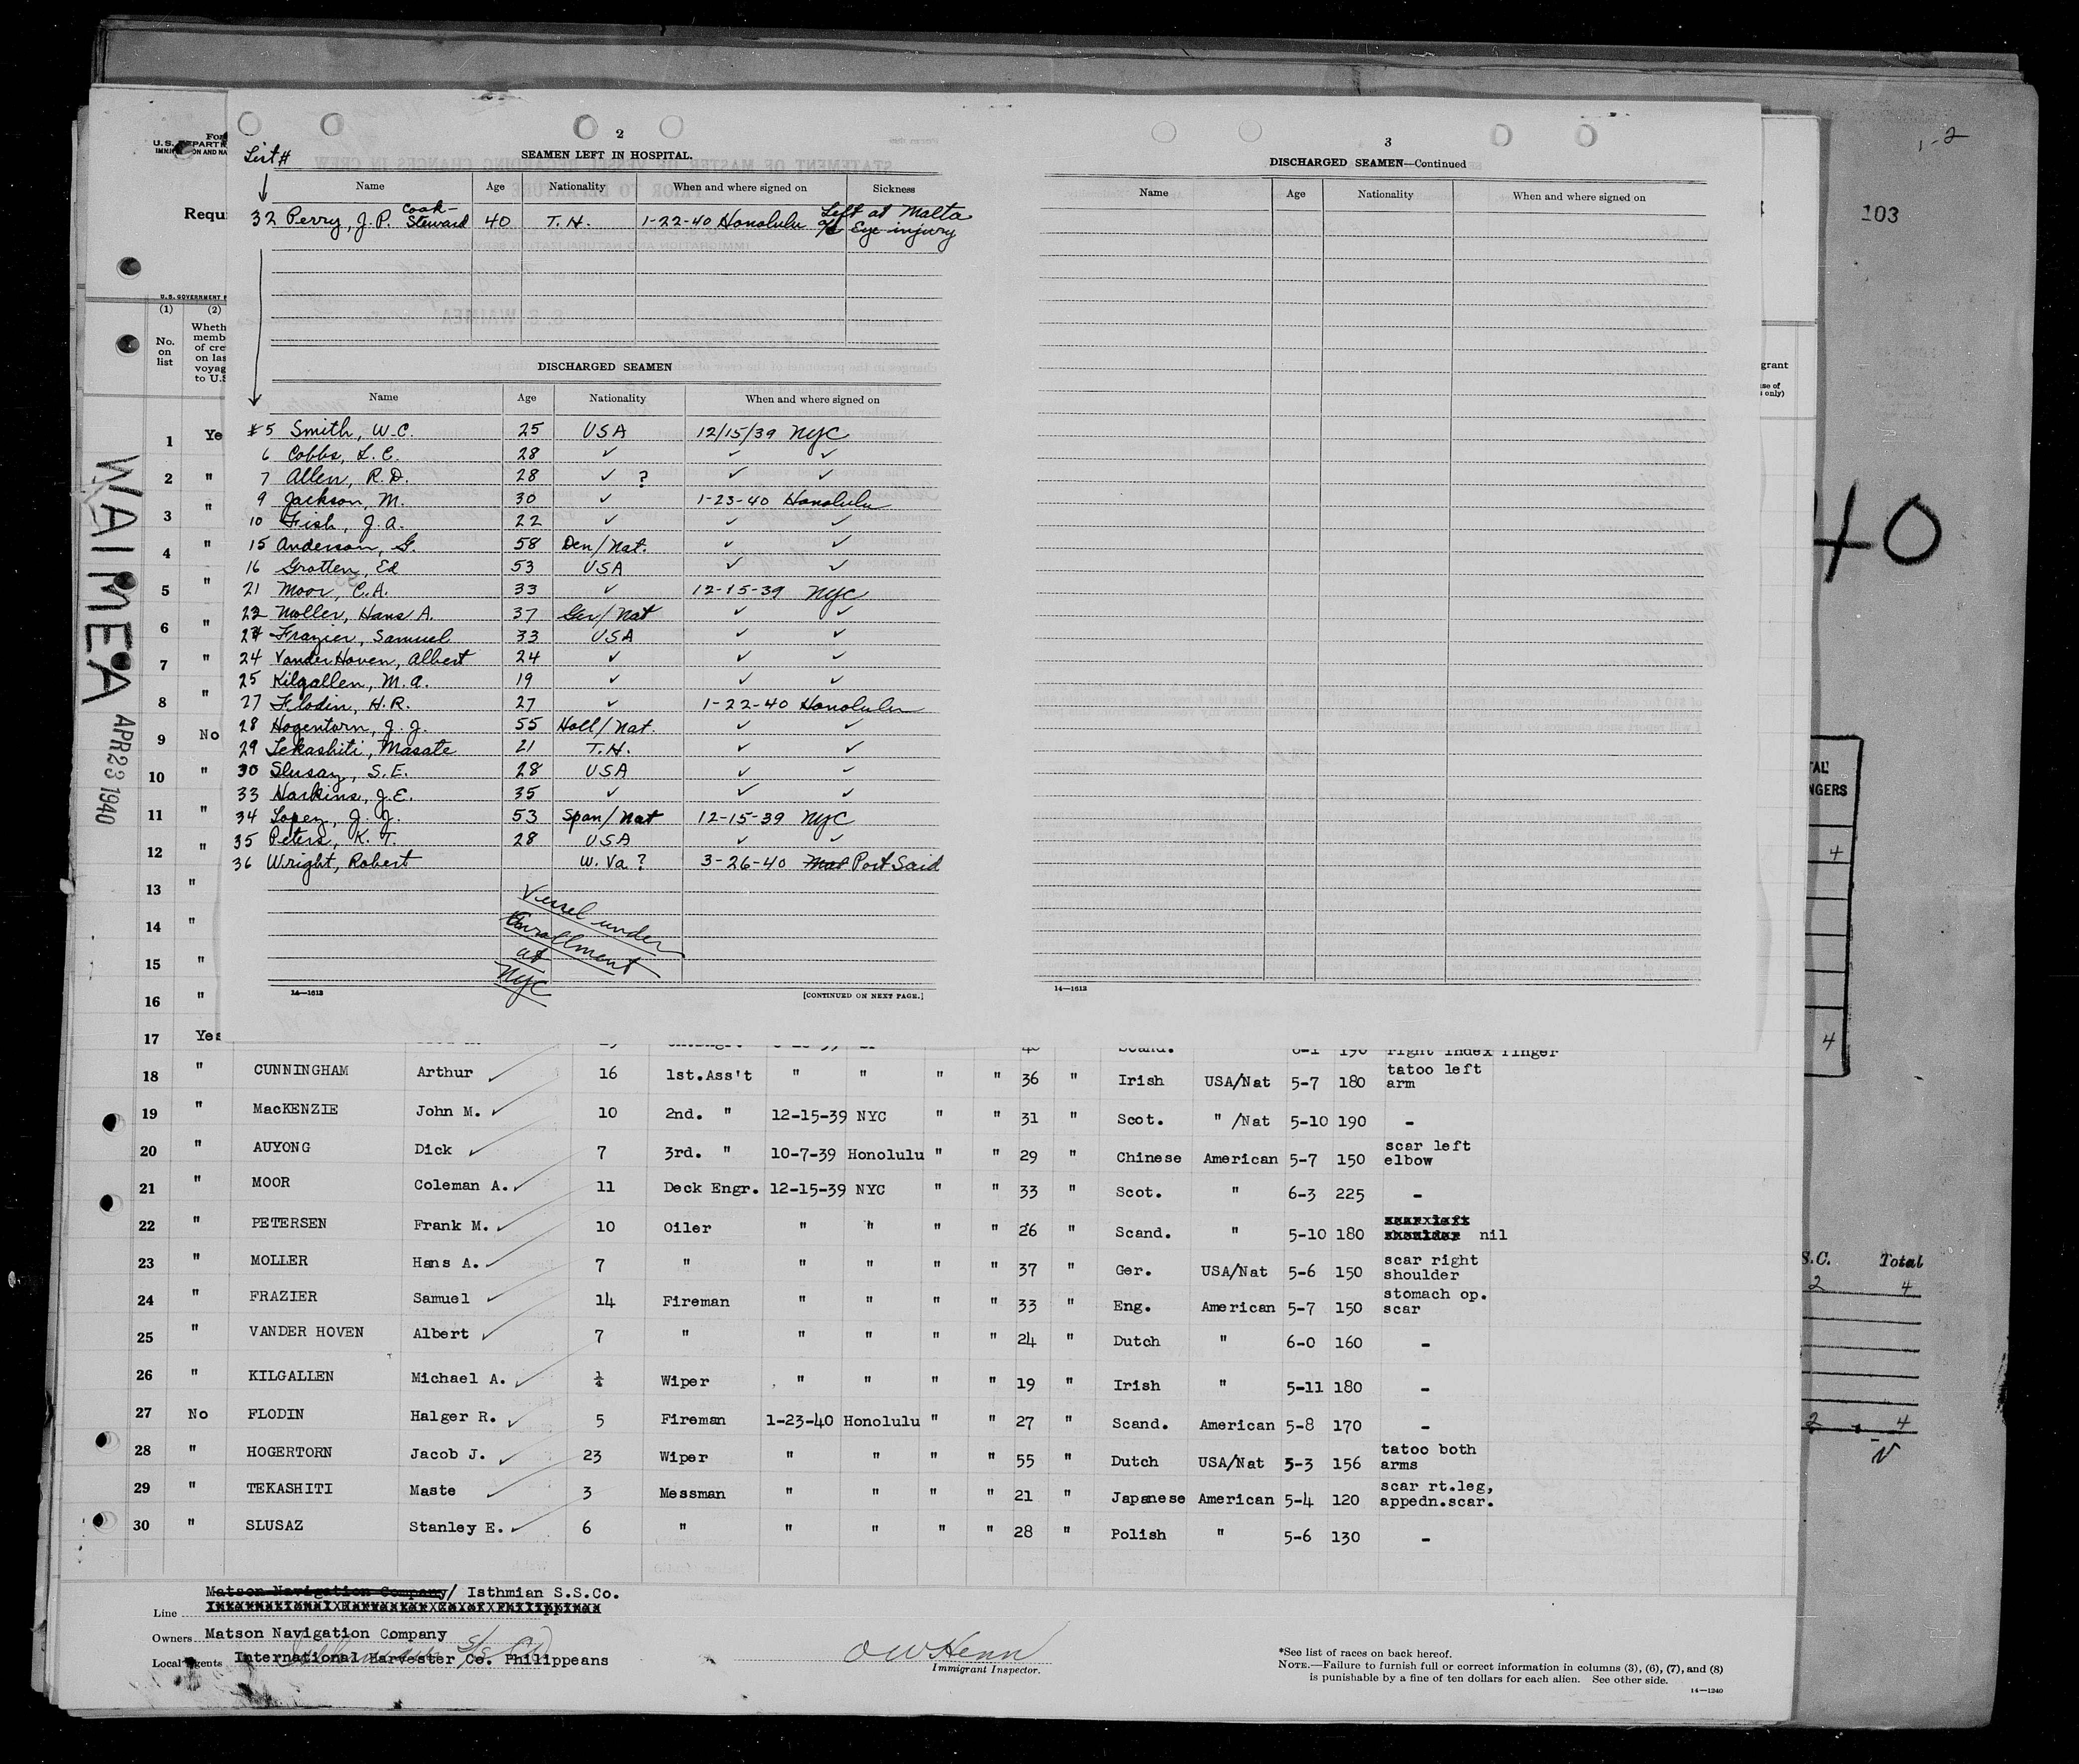 2
List #
SEAMEN LEFT IN HOSPITAL.
Name Age Nationality When and where signed on Sickness
32 Perry, J.P. Cook-Steward 40 T.H. 1-22-40 Honolulu Left at Malta
Eye injury
DISCHARGED SEAMEN
Name Age Nationality When and where signed on
#5 Smith, W.C. 25 USA 12/15/39 NYC
6 Cobbs, L.C. 28 ✓ ✓ ✓
7 Allen, R.D. 28 ✓ ? ✓ ✓
9 Jackson, M. 30 ✓ 1-23-40 Honolulu
10 Fish, J.A. 22 ✓ ✓ ✓
15 Anderson, G. 58 Den/Nat. ✓ ✓
16 Grotten, Ed 53 USA ✓ ✓
21 Moor, C.A. 33 ✓ 12-15-39 NYC
22 Moller, Hans A. 37 Ger/Nat ✓ ✓
24 Frazier, Samuel 33 USA ✓ ✓
24 VanderHoven, Albert 24 ✓ ✓ ✓
25 Kilgallen, M.A. 19 ✓ ✓ ✓
27 Flodin, H.R. 27 ✓ 1-22-40 Honolulu
28 Hogentorn, J.J. 55 Holl/Nat. ✓ ✓
29 Tekashiti, Masate 21 T.H. ✓ ✓
30 Slusaz, S.E. 28 USA ✓ ✓
33 Harkins, J.E. 35 ✓ ✓ ✓
34 Lopez, J.J. 53 Span/Nat 12-15-39 NYC
35 Peters, K.T. 28 USA ✓ ✓
36 Wright, Robert W. Va? 3-26-40 Port Said
Vessel under
Enrollment
at
NYC
14—1613 [CONTINUED ON NEXT PAGE.]
3
DISCHARGED SEAMEN—Continued
Name Age Nationality When and where signed on
14—1613
1-2
103
40
For
U.S. DEPART
Requ
U.S. GOVERNMENT
(1) (2)
No. on list
Wheth
memb
of cre
on las
voyag
to U.S
grant
only)
WAIMEA
APR 23 1940
1 Ye
2 "
3 "
4 "
5 "
6 "
7 "
8 "
9 No
10 "
11 "
12 "
13 "
14 "
15 "
16 "
17 Yes right index finger
18 " CUNNINGHAM Arthur ✓ 16 1st.Ass't " " " " 36 " Irish USA/Nat 5-7 180 tatoo left arm
19 " MacKENZIE John M. ✓ 10 2nd. " 12-15-39 NYC " " 31 " Scot. " /Nat 5-10 190 -
20 " AUYONG Dick ✓ 7 3rd. " 10-7-39 Honolulu " " 29 " Chinese American 5-7 150 scar left elbow
21 " MOOR Coleman A. ✓ 11 Deck Engr. 12-15-39 NYC " " 33 " Scot. " 6-3 225 -
22 " PETERSEN Frank M. ✓ 10 Oiler " " " " 26 " Scand. " 5-10 180 scar left shoulder nil
23 " MOLLER Hans A. ✓ 7 " " " " " 37 " Ger. USA/Nat 5-6 150 scar right shoulder
24 " FRAZIER Samuel ✓ 14 Fireman " " " " 33 " Eng. American 5-7 150 stomach op. scar
25 " VANDER HOVEN Albert ✓ 7 " " " " " 24 " Dutch " 6-0 160 -
26 " KILGALLEN Michael A. ✓ ¼ Wiper " " " " 19 " Irish " 5-11 180 -
27 No FLODIN Halger R. ✓ 5 Fireman 1-23-40 Honolulu " " 27 " Scand. American 5-8 170 -
28 " HOGERTORN Jacob J. ✓ 23 Wiper " " " " 55 " Dutch USA/Nat 5-3 156 tatoo both arms
29 " TEKASHITI Maste ✓ 3 Messman " " " " 21 " Japanese American 5-4 120 scar rt.leg, appedn.scar.
30 " SLUSAZ Stanley E. ✓ 6 " " " " " 28 " Polish " 5-6 130 -
Matson Navigation Company/ Isthmian S.S.Co.
Line
Owners Matson Navigation Company
Local Agents International Harvester Co. Philippeans
O W Henn
Immigrant Inspector.
*See list of races on back hereof.
NOTE.—Failure to furnish full or correct information in columns (3), (6), (7), and (8)
is punishable by a fine of ten dollars for each alien. See other side.
14—1240
NGERS
4
4
S.C. Total
2 4
2 4